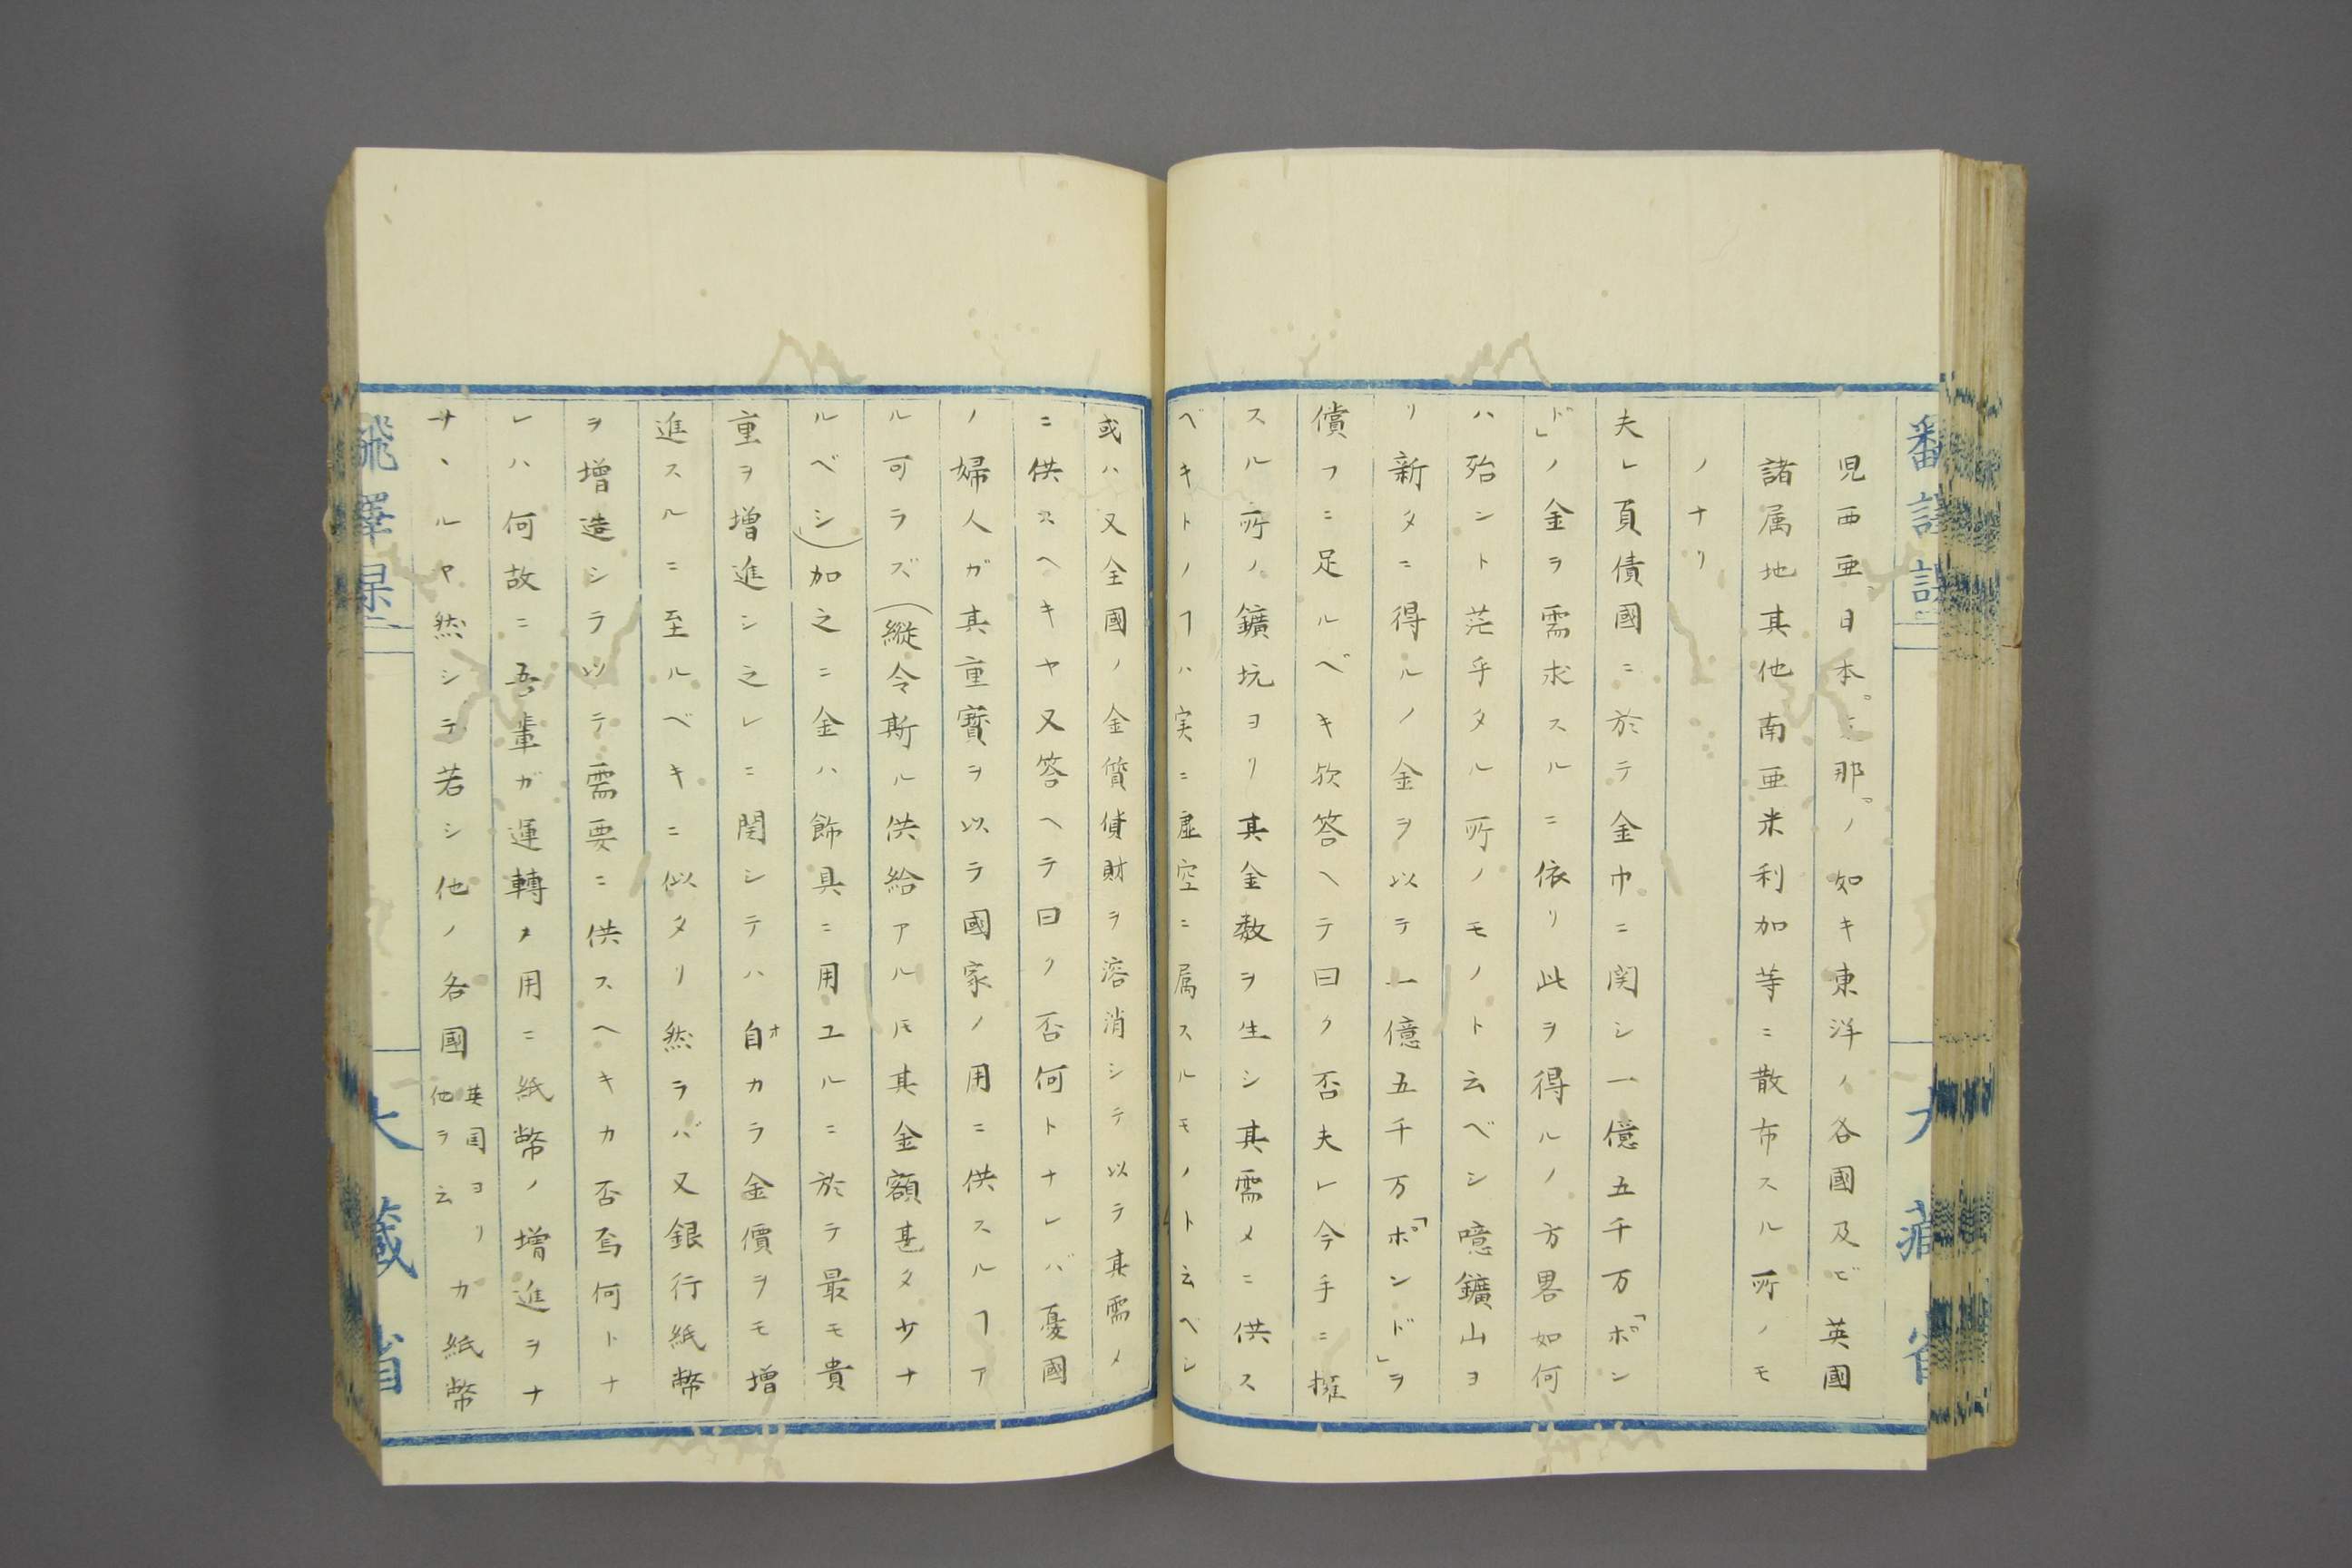 児西亜日本。支那。ノ如キ東洋ノ各國及ビ英國
諸属地其他南亜米利加等ニ散布スル所ノモ
ノナリ
夫レ負債國ニ於テ金巾ニ関シ一億五千万「ポン
ド」ノ金ヲ需求スルニ依リ此ヲ得ルノ方畧如何
ハ殆ント茫乎タル所ノモノト云ベシ噫鑛山ヨ
リ新タニ得ルノ金ヲ以テ一億五千万「ポンド」ヲ
償フニ足ルベキ欤答ヘテ曰ク否夫レ今手ニ擁
スル所ノ鑛坑ヨリ其金数ヲ生シ其需メニ供ス
ベキトノヿハ実ニ虚空ニ属スルモノト云ヘシ
或ハ又全國ノ金質貨財ヲ溶消シテ以テ其需メ
ニ供スヘキヤ又答ヘテ曰ク否何トナレバ憂國
ノ婦人ガ其重寳ヲ以テ國家ノ用ニ供スルヿア
ル可ラズ(縦令斯ル供給アルモ其金額甚タ少ナ
ルベシ)加之ニ金ハ飾具ニ用ユルニ於テ最モ貴
重ヲ増進シ之レニ関シテハ自オカラ金價ヲモ増
進スルニ至ルベキニ似タリ然ラバ又銀行紙幣
ヲ増造シテ以テ需要ニ供スヘキカ否焉何トナ
レハ何故ニ吾輩ガ運轉ノ用ニ紙幣ノ増進ヲナ
サヽルヤ然シテ若シ他ノ各國英国ヨリ他ヲ云カ紙幣
大藏省
大藏省